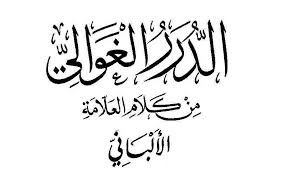 الدُّرَرُ الغَوَالِيّ
مِنْ كَلَامِ العَلَّامَةِ
الأَلْبَانِيّ